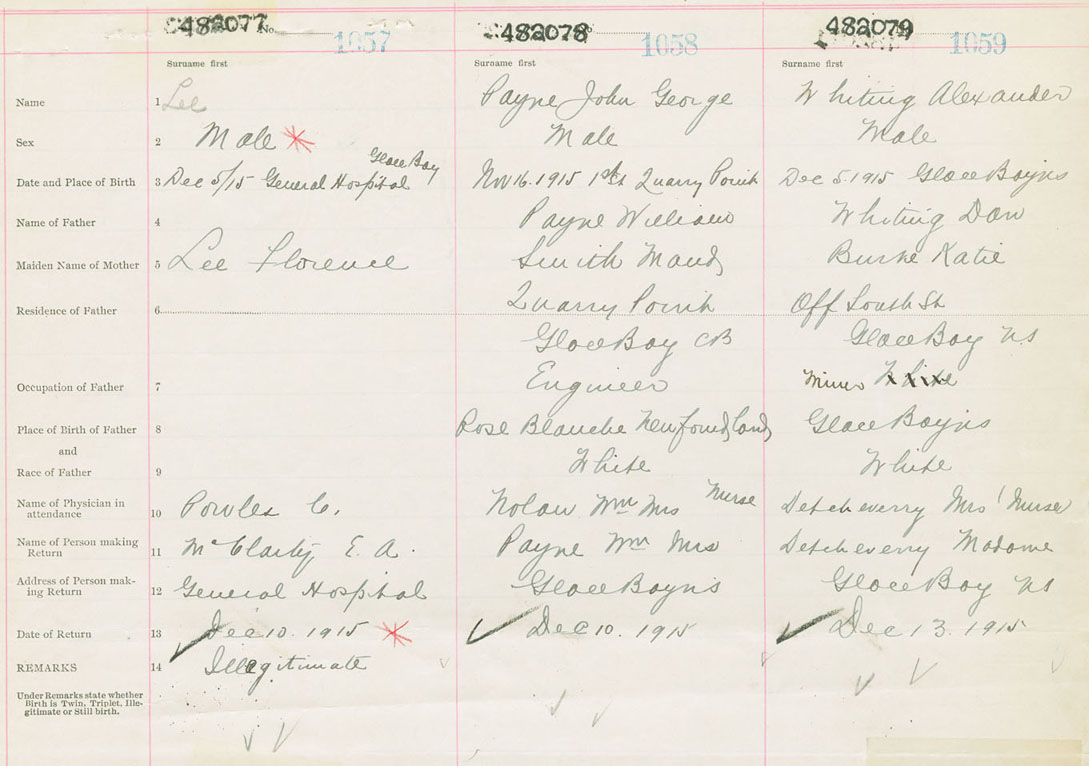 482077 No. 1057 482078 No 1058 482079 1059
Surname first Surname first Surname first
Name 1 Lee Payne John George Whiting Alexander
Sex 2 Male Male Male
Glace Bay
Date and Place of Birth 3 Dec 5/15 General Hospital Nov 16. 1915 Quarry Point Dec 5. 1915 Glace Bay ns
Name of Father 4 Payne William Whiting Dan
Maiden Name of Mother 5 Lee Florence Smith Maud Burke Katie
Residence of Father 6 Quarry Point Off South St
Glace Bay CB Glace Bay NS
Occupation of Father 7 Engineer Miner White
Place of Birth of Father 8 Rose Blanche Newfoundland Glace Bay ns
and
Race of Father 9 White White
Name of Physician in
attendance 10 Powles C. Nolan Wm Mrs Nurse Detcheverry Mrs Nurse
Name of Person making
Return 11 E. A. Payne Wm Mrs Detcheverry Madame
Address of Person mak-
ing Return 12 General Hospital Glace Bay ns Glace Bay NS
Date of Return 13 Dec 10. 1915 Dec 10. 1915 Dec 13. 1915
REMARKS 14 Illegitimate
Under Remarks state whether
Birth is Twin, Triplet, Ille-
gitimate or Still birth.